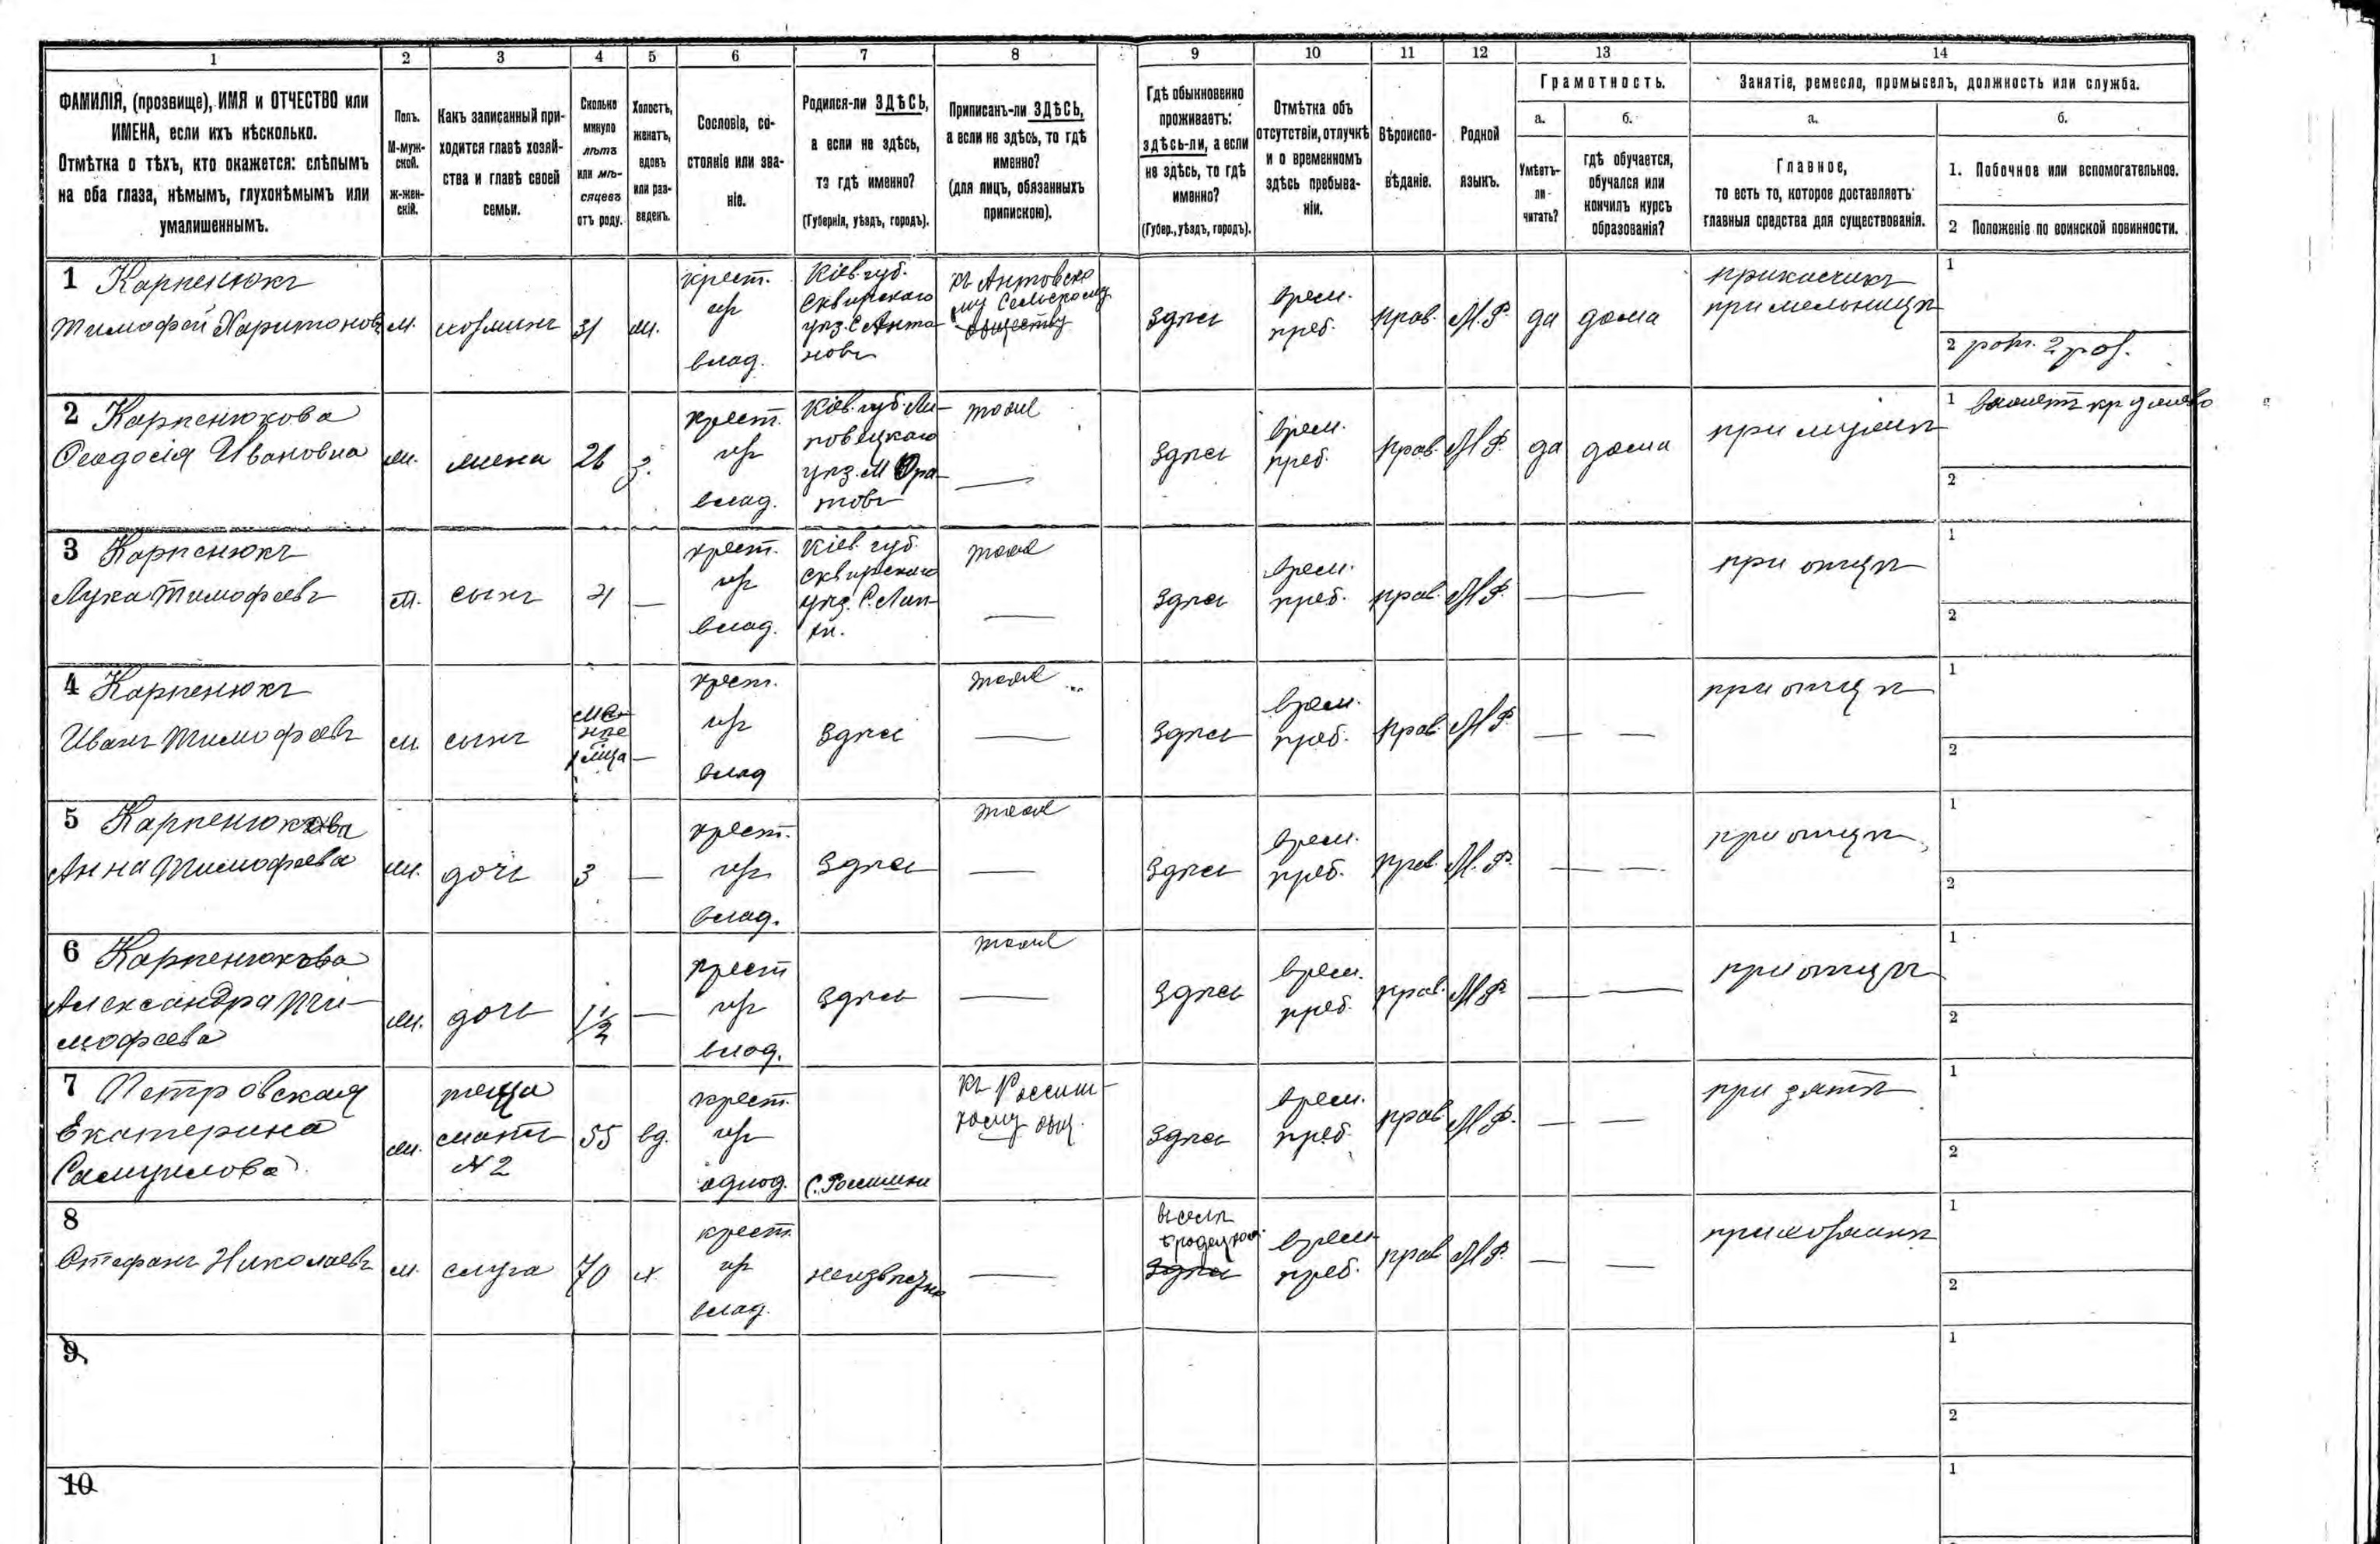 1 2 3 4 5 6 7 8 9 10 11 12 13 14
ФАМИЛІЯ, (прозвище), ИМЯ и ОТЧЕСТВО или
ИМЕНА, если ихъ нѣсколько.
Отмѣтка о тѣхъ, кто окажется: слѣпымъ
на оба глаза, нѣмымъ, глухонѣмымъ или
умалишеннымъ.
Полъ.
М-муж-
ской.
Ж-жен-
скій.
Какъ записанный при-
ходится главѣ хозяй-
ства и главѣ своей
семьи.
Сколько
минуло
лѣтъ
или мѣ-
сяцевъ
отъ роду.
Холостъ,
женатъ,
вдовъ
или раз-
веденъ.
Сословіе, со-
стояніе или зва-
ніе.
Родился-ли ЗДѢСЬ,
а если не здѣсь,
то гдѣ именно?
(Губернія, уѣздъ, городъ).
Приписанъ-ли ЗДѢСЬ,
а если не здѣсь, то гдѣ
именно?
(для лицъ, обязанныхъ
припискою).
Гдѣ обыкновенно
проживаетъ:
здѣсь-ли, а если
не здѣсь, то гдѣ
именно?
(Губер., уѣздъ, городъ).
Отмѣтка объ
отсутствіи, отлучкѣ
и о временномъ
здѣсь пребыва-
ніи.
Вѣроиспо-
вѣданіе.
Родной
языкъ.
Грамотность.
а.
Умѣетъ-
ли
читать?
б.
гдѣ обучается,
обучался или
кончилъ курсъ
образованія?
Занятіе, ремесло, промыселъ, должность или служба.
а.
Главное,
то есть то, которое доставляетъ
главныя средства для существованія.
б.
1. Побочное или вспомогательное.
2 Положеніе по воинской повинности.
1 Карпенюкъ
Тимофей Харитоновъ
м.
хозяинъ
31
ж.
крест.
изъ
влад.
Кіев. губ.
Сквирскаго
уѣз. С. Анто
новъ
къ Антовско
му Сельскому
обществу
здѣсь
врем.
преб.
прав.
М. Р.
да
дома
прикасчикъ
при мельницѣ
1
2 рат. 2 раз.
2 Карпенюкова
Феодосія Ивановна
ж.
жена
26
з.
крест.
изъ
влад.
Кіев. губ. Ли-
повецкаго
уѣз. М Ора-
товъ
тоже
здѣсь
врем.
преб.
прав.
М Р.
да
дома
при мужѣ
1
2
3 Карпенюкъ
Лука Тимофеевъ
м.
сынъ
4
—
крест.
изъ
влад.
Кіев. губ.
Сквирскаго
уѣз. С.
тоже
здѣсь
врем.
преб.
прав.
М Р.
— —
при отцѣ
1
2
4 Карпенюкъ
Иванъ Тимофеевъ
м.
сынъ
ме-
нѣе
—
крест.
изъ
влад
здѣсь
тоже
здѣсь
врем.
преб.
прав.
М Р.
— —
при отцѣ
1
2
5 Карпенюкова
Анна Тимофеева
ж.
дочь
3
—
крест.
изъ
влад.
здѣсь
тоже
здѣсь
врем.
преб.
прав.
М. Р.
— —
при отцѣ
1
2
6 Карпенюкова
Александра Ти-
мофеева
ж.
дочь
1½
—
крест
изъ
влад.
здѣсь
тоже
здѣсь
врем.
преб.
прав.
М Р.
— —
при отцѣ
1
2
7 Петровская
Екатерина
Самуилова
ж.
теща
мать
№ 2
55
вд.
крест.
изъ
однод.
къ Россиш-
кому общ.
здѣсь
врем.
преб.
прав.
М Р.
— —
при зятѣ
1
2
8
Стефанъ Николаевъ
м.
слуга
70
х
крест.
изъ
влад.
неизвѣзно
—
здѣсь
врем.
преб.
прав
М Р.
— —
при хозяинѣ
1
2
9
1
2
10
1